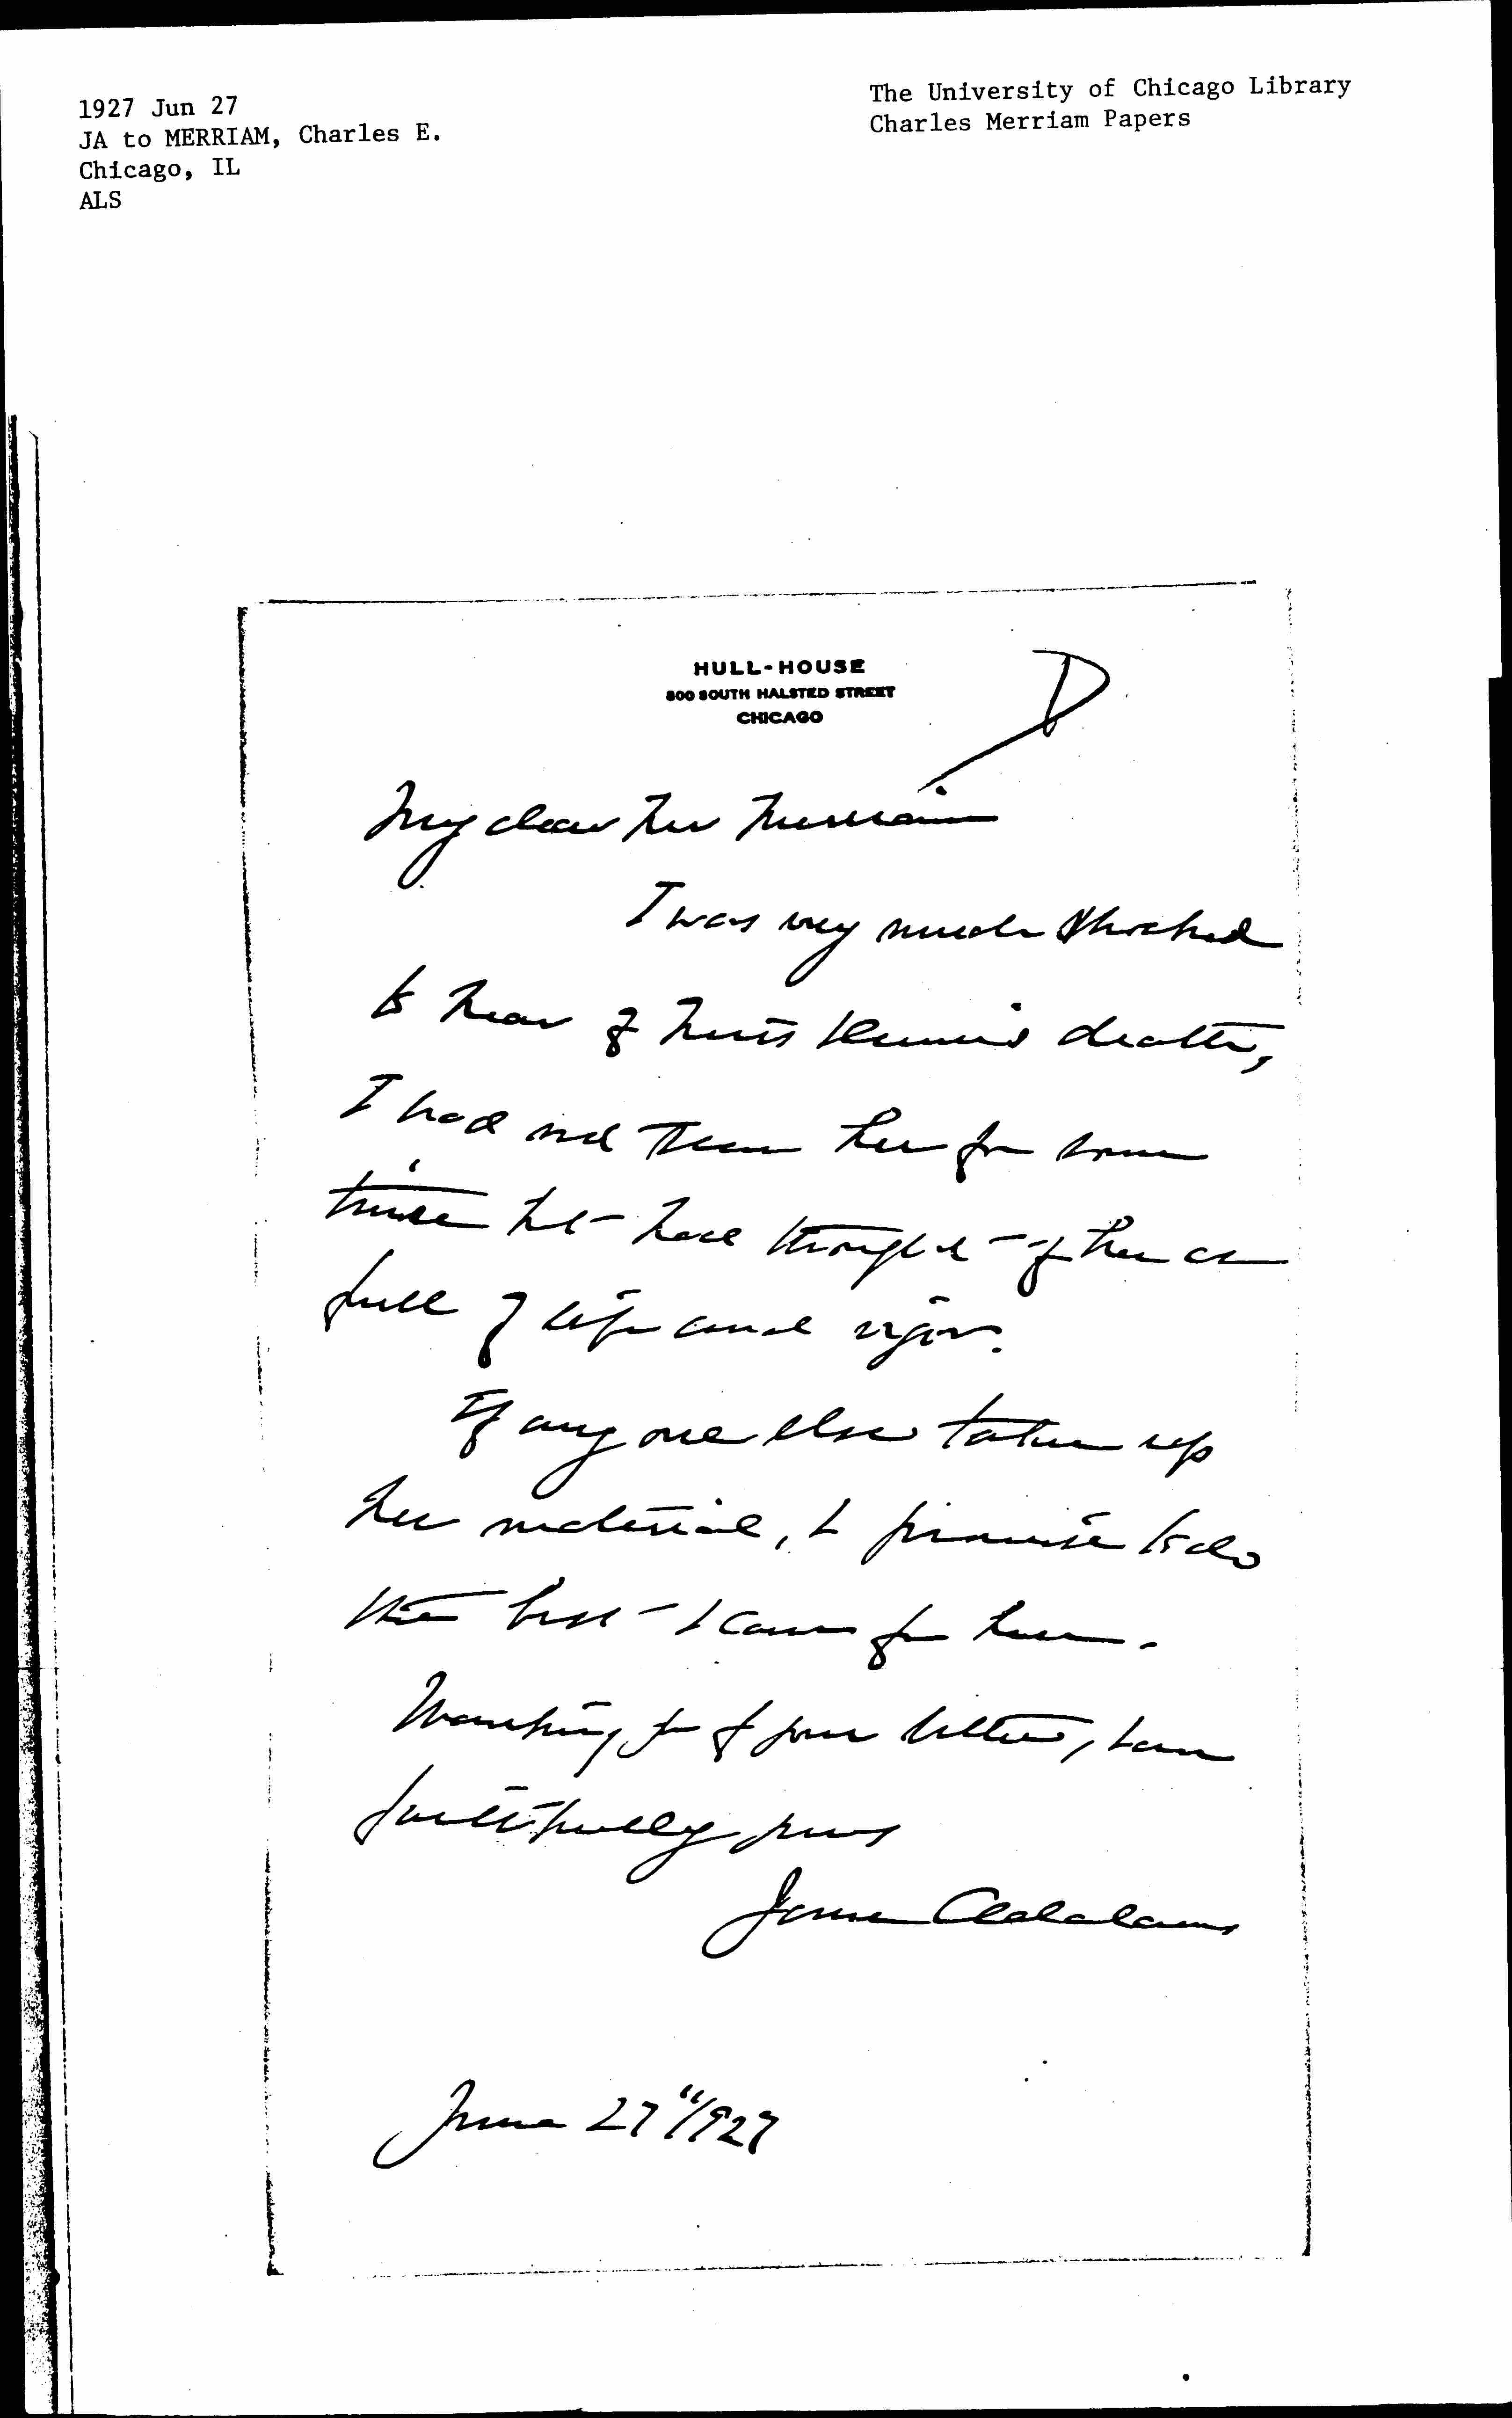 1927 Jun 27
JA to MERRIAM, Charles E.
Chicago, IL
ALS
The University of Chicago Library
Charles Merriam Papers
HULL-HOUSE
800 SOUTH HALSTED STREET
CHICAGO
D
My dear Mr Merriam
I was very much shocked
to hear of death,
I had not seen her for some
time but had thought of her as
full of life and vigor.
If any one else takes up
her material, I promise to do
the best I can for them.
Thanking you for your letter, I am
faithfully yours
Jane Addams
June 27" 1927